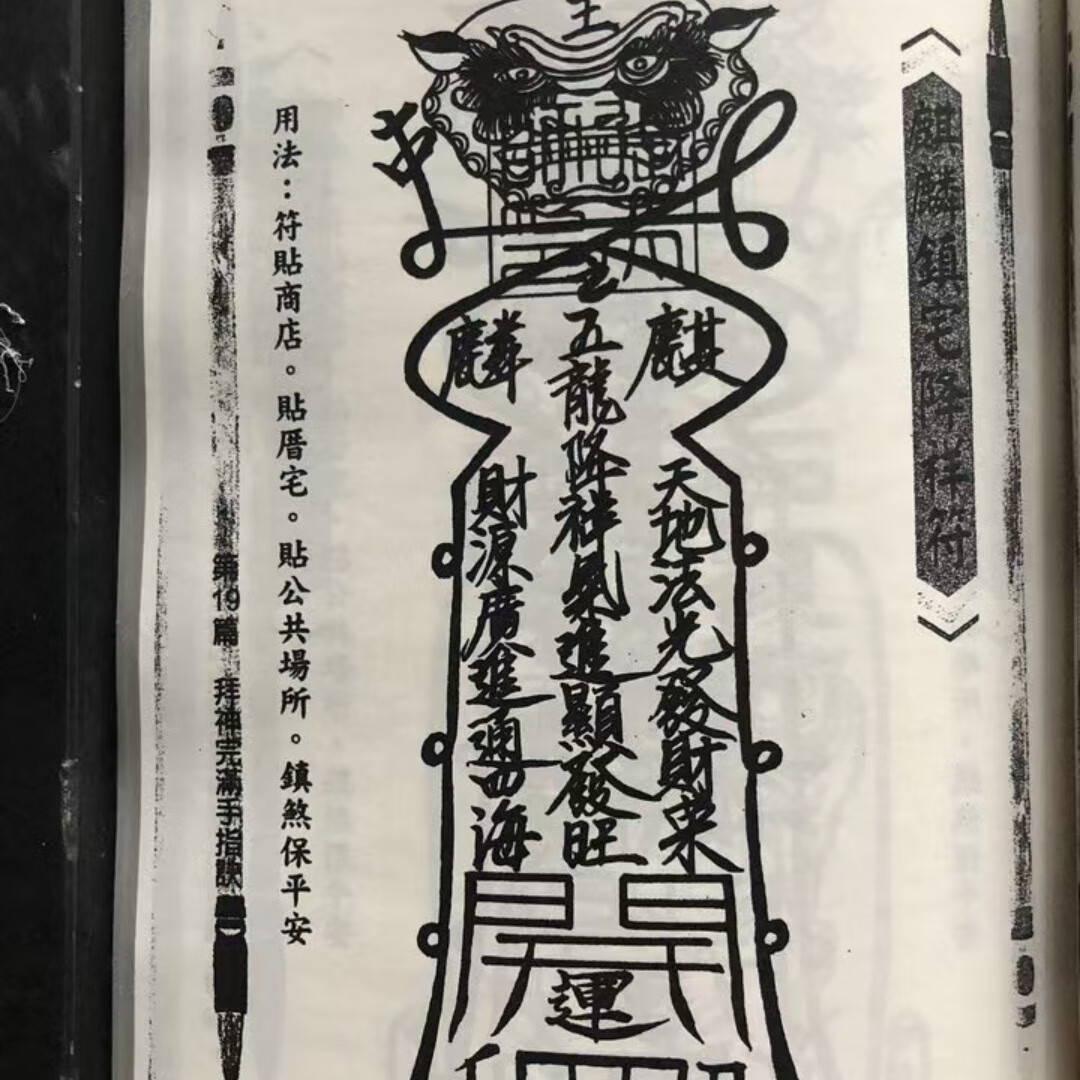 麒麟鎮宅降祥符
王
麒
麟
五龍降祥氣進顯發旺
天地法光發財來
財源廣進通四海
開
運
用法：符貼商店。貼厝宅。貼公共場所。鎮煞保平安
第19篇 拜神完滿手指訣